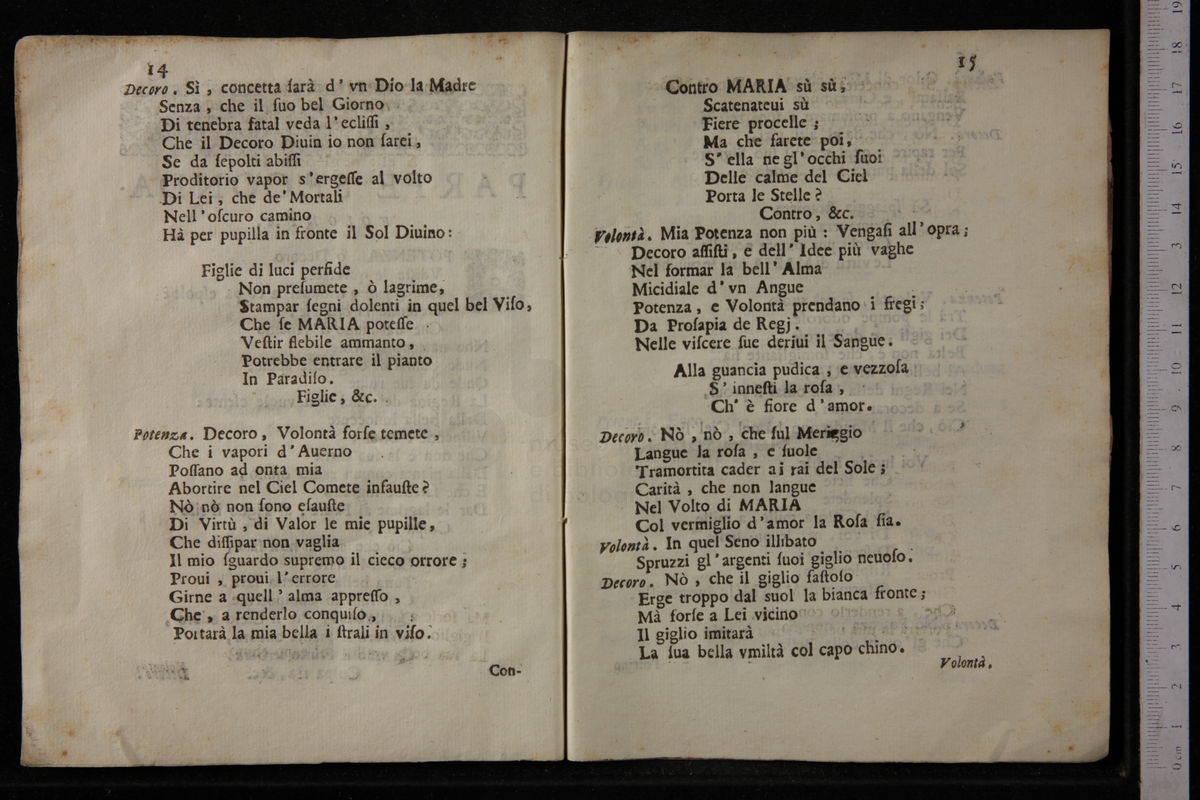 14
Decoro. Sì, concetta ſarà d' vn Dio la Madre
Senza, che il ſuo bel Giorno
Di tenebra fatal veda l'ecliſſi,
Che il Decoro Diuin io non ſarei,
Se da ſepolti abiſſi
Proditorio vapor s'ergeſſe al volto
Di Lei, che de' Mortali
Nell'oſcuro camino
Hà per pupilla in fronte il Sol Diuino:
Figlie di luci perfide
Non preſumete, ò lagrime,
Stampar ſegni dolenti in quel bel Viſo,
Che ſe MARIA poteſſe
Veſtir flebile ammanto,
Potrebbe entrare il pianto
In Paradiſo.
Figlie, &c.
Potenza. Decoro, Volontà forſe temete,
Che i vapori d'Auerno
Poſſano ad onta mia
Abortire nel Ciel Comete infauſte?
Nò nò non ſono eſauſte
Di Virtù, di Valor le mie pupille,
Che diſſipar non vaglia
Il mio ſguardo supremo il cieco orrore;
Proui, proui l'errore
Girne a quell' alma appreſſo,
Che, a renderlo conquiſo,
Portarà la mia bella i ſtrali in viſo.
Con-
15
Contro MARIA sù sù,
Scatenateui sù
Fiere procelle;
Ma che farete poi,
S' ella ne gl'occhi ſuoi
Delle calme del Ciel
Porta le Stelle?
Contro, &c.
Volontà. Mia Potenza non più: Vengaſi all'opra;
Decoro aſſiſti, e dell' Idee più vaghe
Nel formar la bell' Alma
Micidiale d' vn Angue
Potenza, e Volontà prendano i fregi;
Da Proſapia de Regj.
Nelle viſcere ſue deriui il Sangue.
Alla guancia pudica, e vezzoſa
S' inneſti la roſa,
Ch' è fiore d'amor.
Decoro. Nò, nò, che ſul Meriggio
Langue la roſa, e ſuole
Tramortita cader ai rai del Sole;
Carità, che non langue
Nel Volto di MARIA
Col vermiglio d'amor la Roſa ſia.
Volontà. In quel Seno illibato
Spruzzi gl'argenti ſuoi giglio neuoſo.
Decoro. Nò, che il giglio faſtoſo
Erge troppo dal suol la bianca fronte;
Mà forſe a Lei vicino
Il giglio imitarà
La ſua bella vmiltà col capo chino.
Volontà.